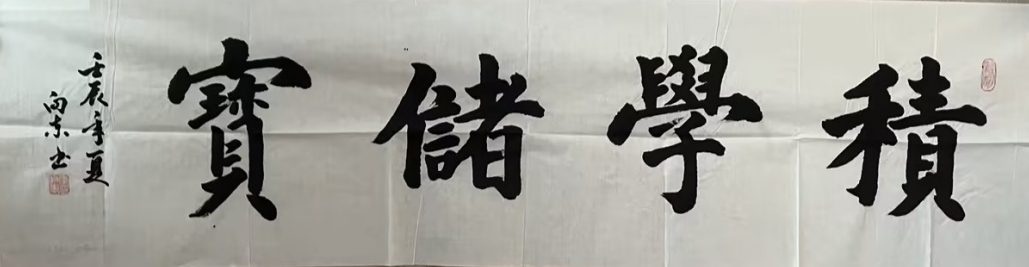 積學儲寶
壬辰年夏
向東书